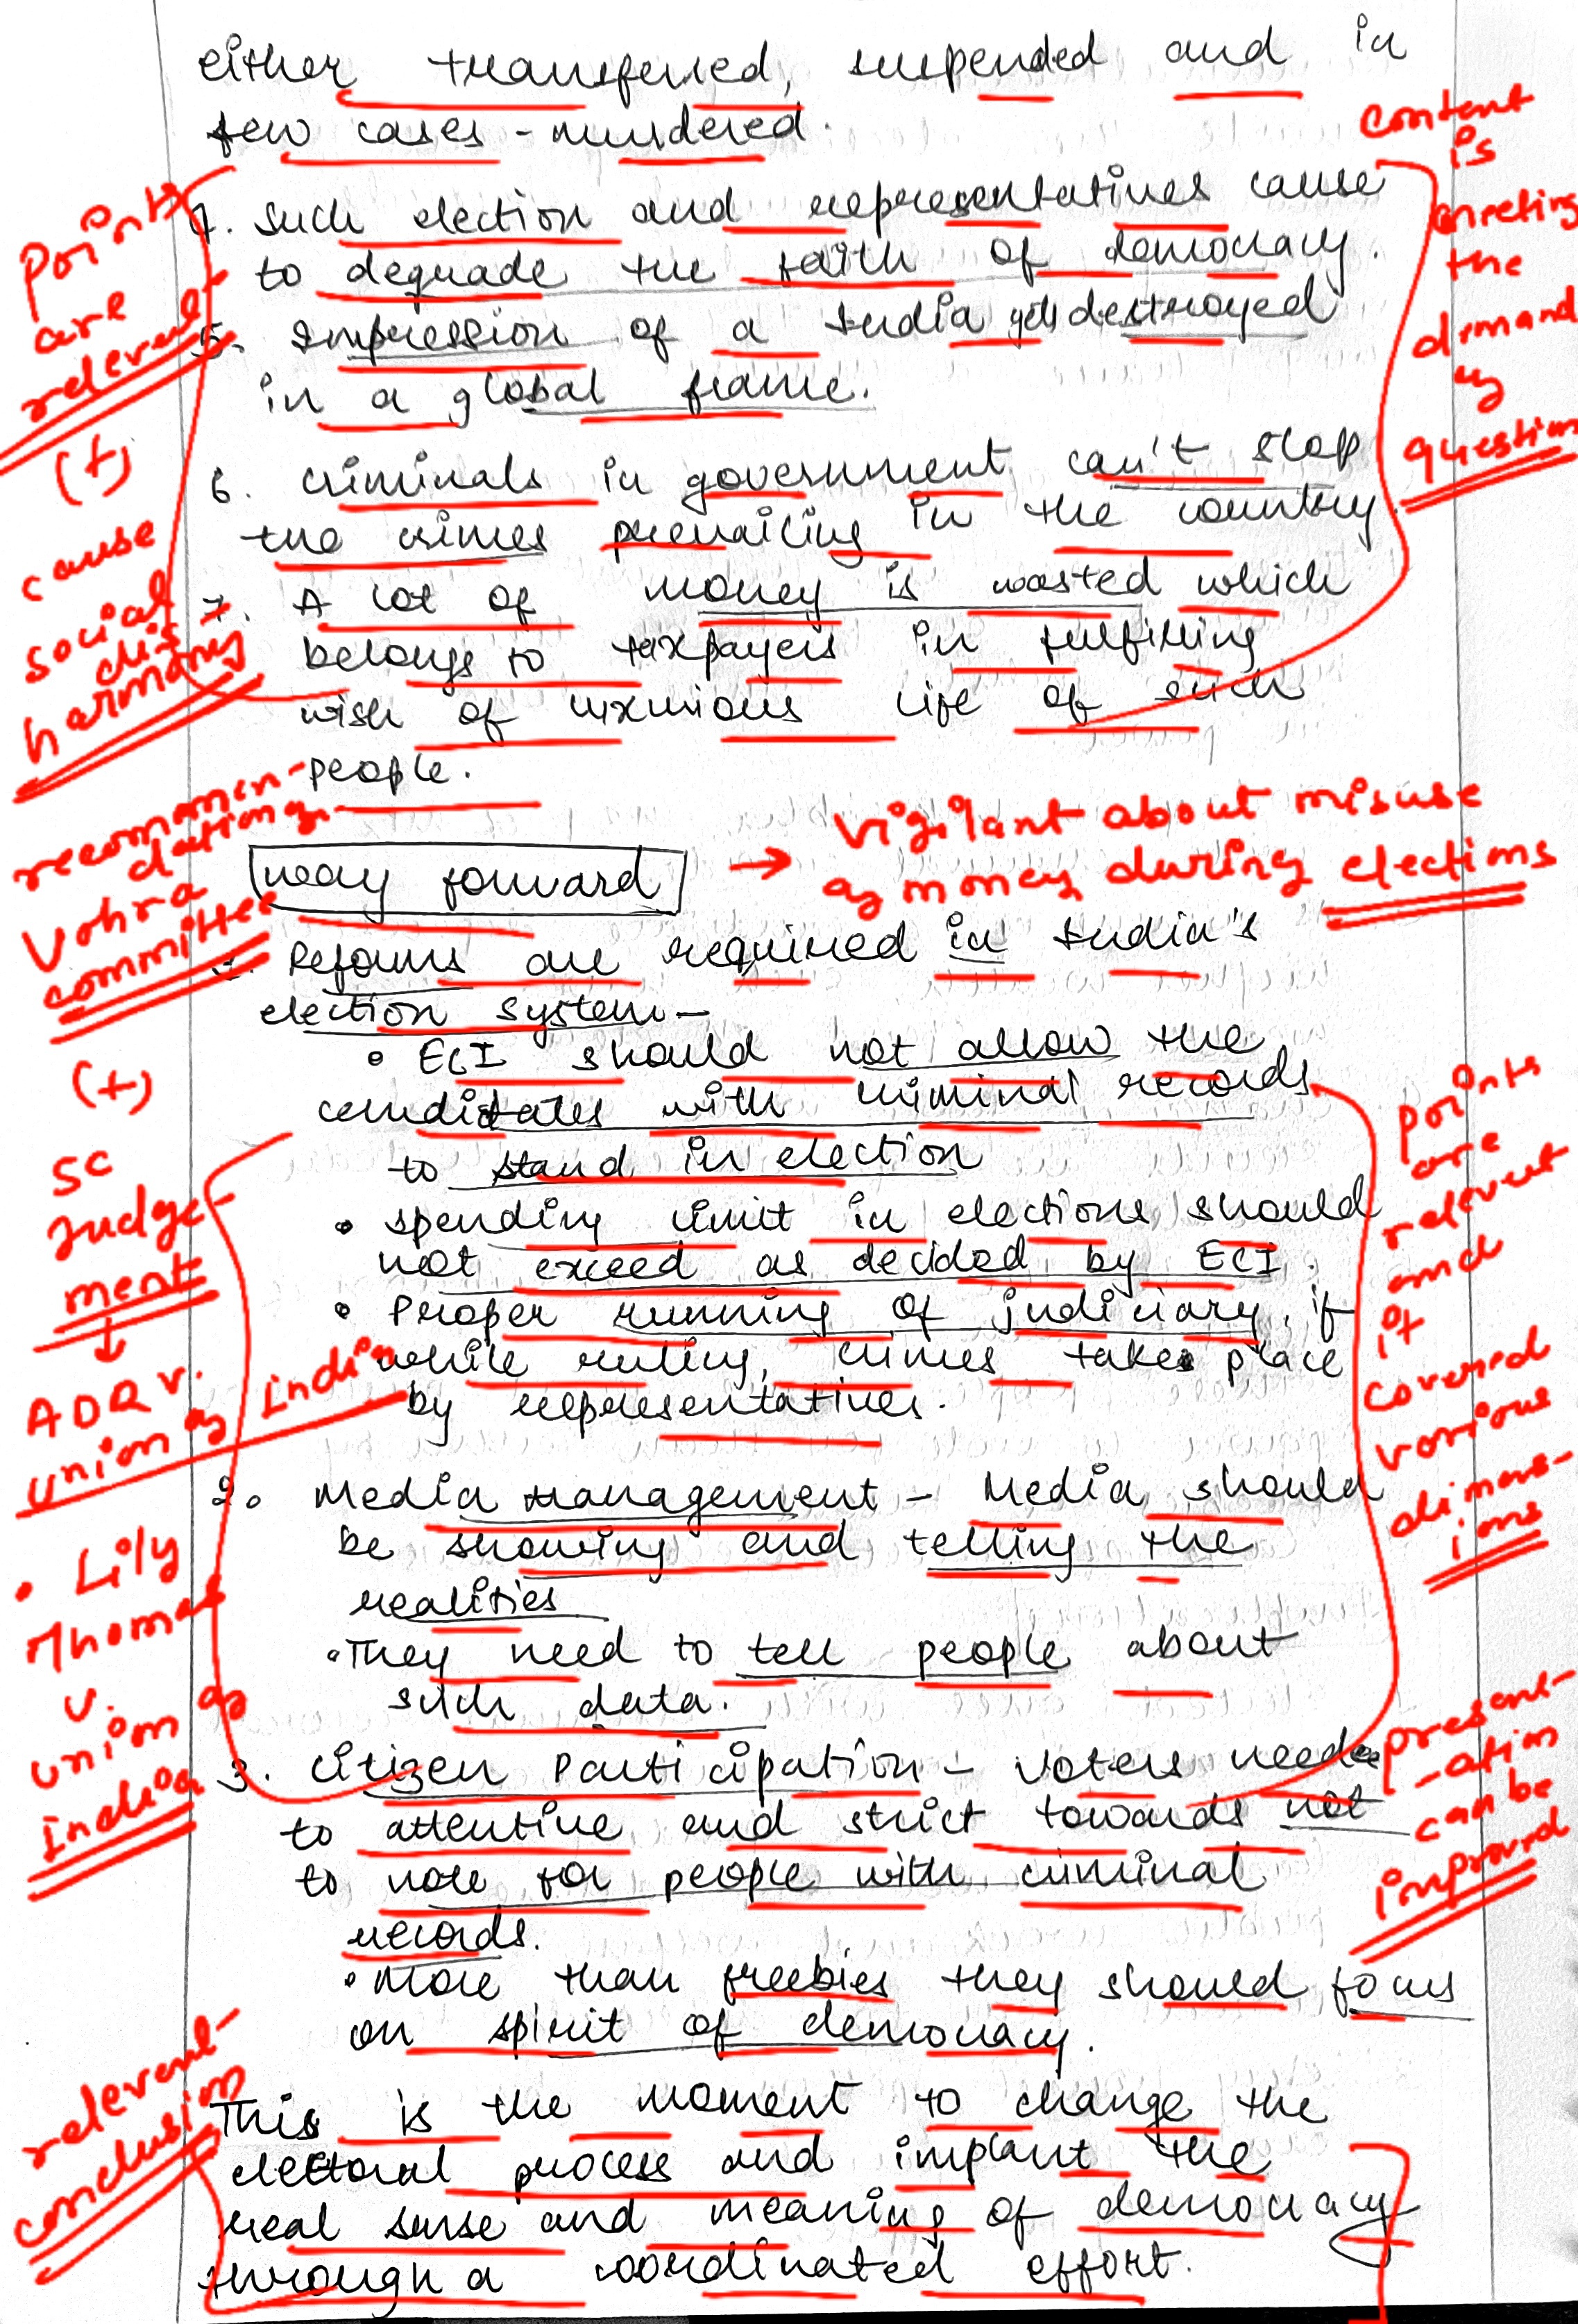 either transferred, suspended and in
few cases - murdered.
4. Such election and representatives cause
to degrade the faith of democracy.
5. Impression of a India gets destroyed
in a global frame.
6. criminals in government can't stop
the crimes prevailing in the country.
7. A lot of money is wasted which
belongs to taxpayers in fulfilling
wish of luxurious life of such
people.
way forward
1. Reforms are required in India's
election system -
• ECI should not allow the
candidates with criminal records
to stand in election
• spending limit in elections should
not exceed as decided by ECI.
• Proper running of judiciary, if
while ruling, crimes takes place
by representatives.
2. Media management - Media should
be showing and telling the
realities
• They need to tell people about
such data.
3. Citizen Participation - Voters needs
to attentive and strict towards not
to vote for people with criminal
records.
• More than freebies they should focus
on spirit of democracy.
This is the moment to change the
electoral process and implant the
real sense and meaning of democracy
through a coordinated effort.
Points
are
relevant
(+)
cause
social
dis-
harmony
recommen-
dations
Vohra
committee
(+)
SC
Judge-
ment
↓
ADR v.
union of India
• Lily
Thomas
v.
union of
India
relevant
conclusion
content
is
meeting
the
demand
of
question
→ Vigilant about misuse
of money during elections
points
are
relevent
and
it
covered
various
dimens-
ions
present-
-ation
can be
improved